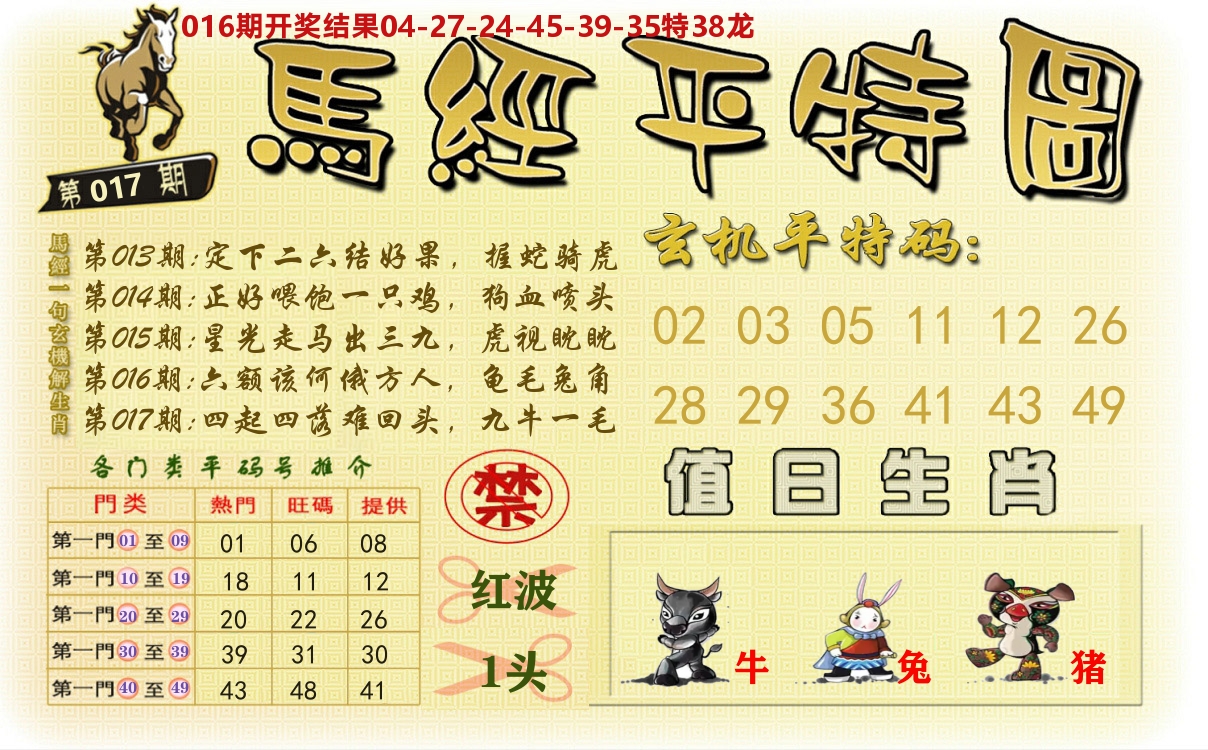 016期开奖结果04-27-24-45-39-35特38龙
馬經平特圖
第017期
馬經一句玄機解生肖
第013期:定下二六结好果，握蛇骑虎
第014期:正好喂饱一只鸡，狗血喷头
第015期:星光走马出三九，虎视眈眈
第016期:六额该何俄方人，龟毛兔角
第017期:四起四落难回头，九牛一毛
玄机平特码:
02 03 05 11 12 26
28 29 36 41 43 49
各门类平码号推介
門类 熱門 旺碼 提供
第一門01至09 01 06 08
第一門10至19 18 11 12
第一門20至29 20 22 26
第一門30至39 39 31 30
第一門40至49 43 48 41
禁
红波
1头
值日生肖
牛 兔 猪